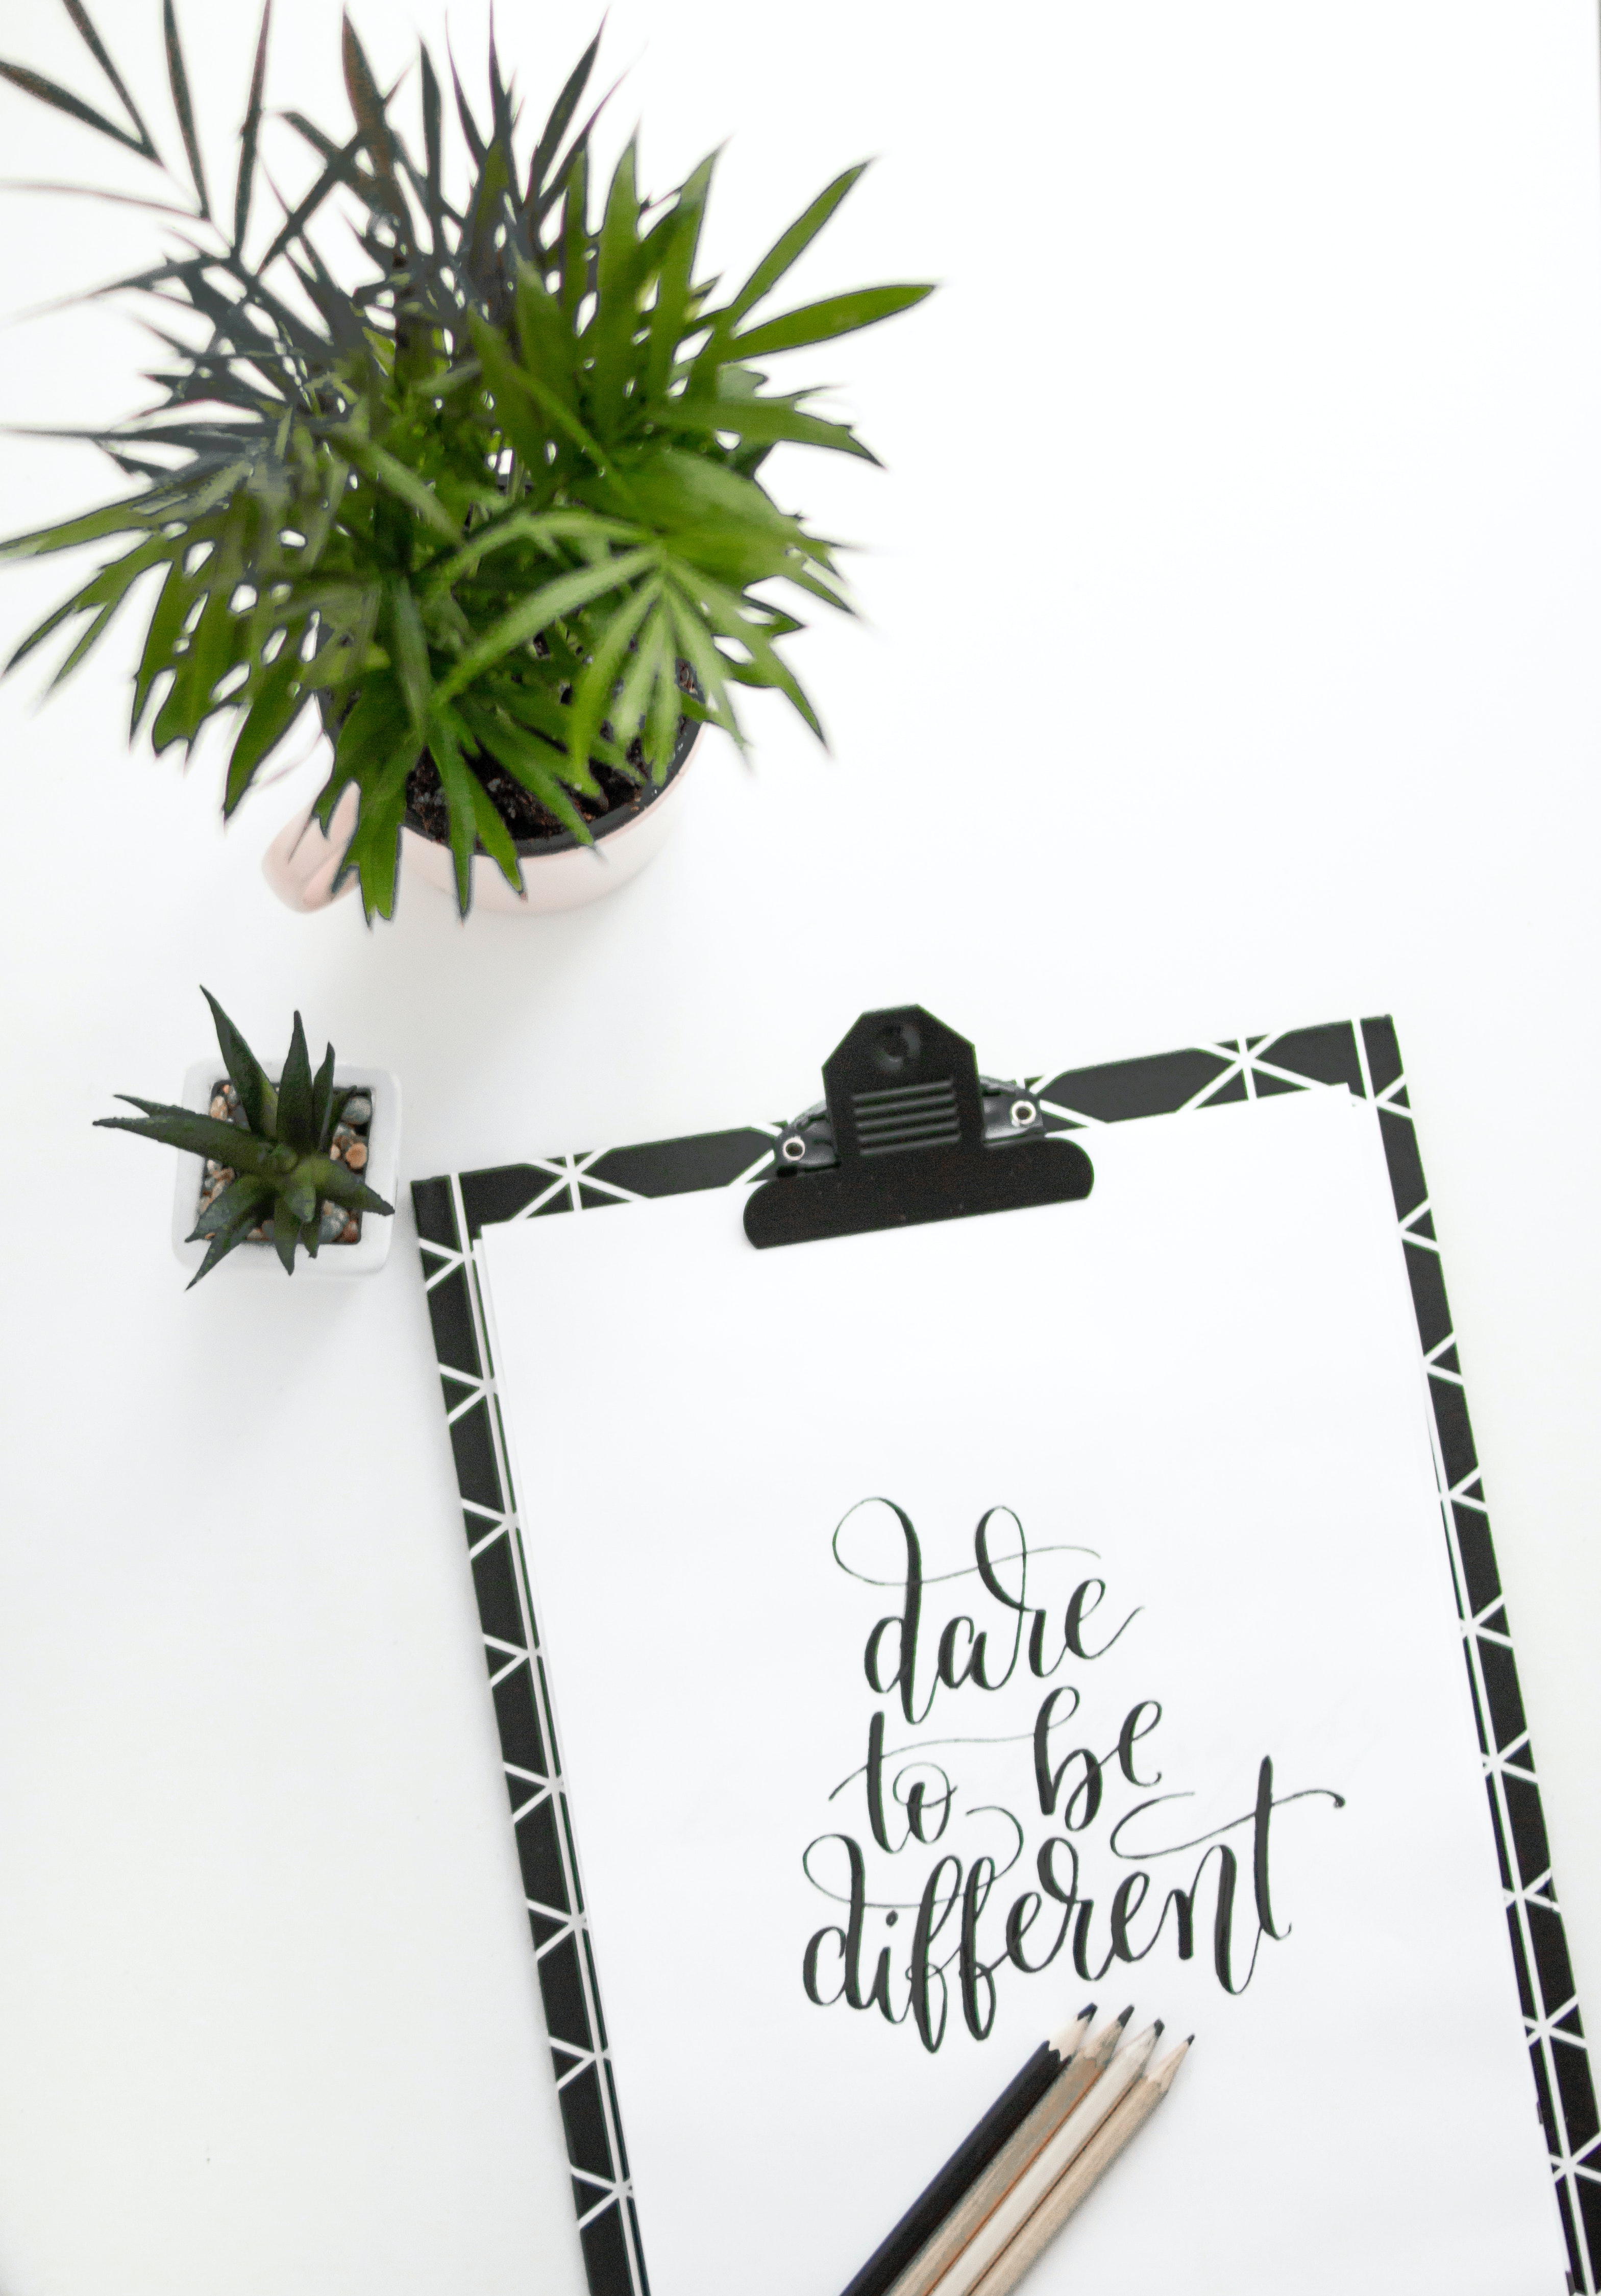 dare
to be
different